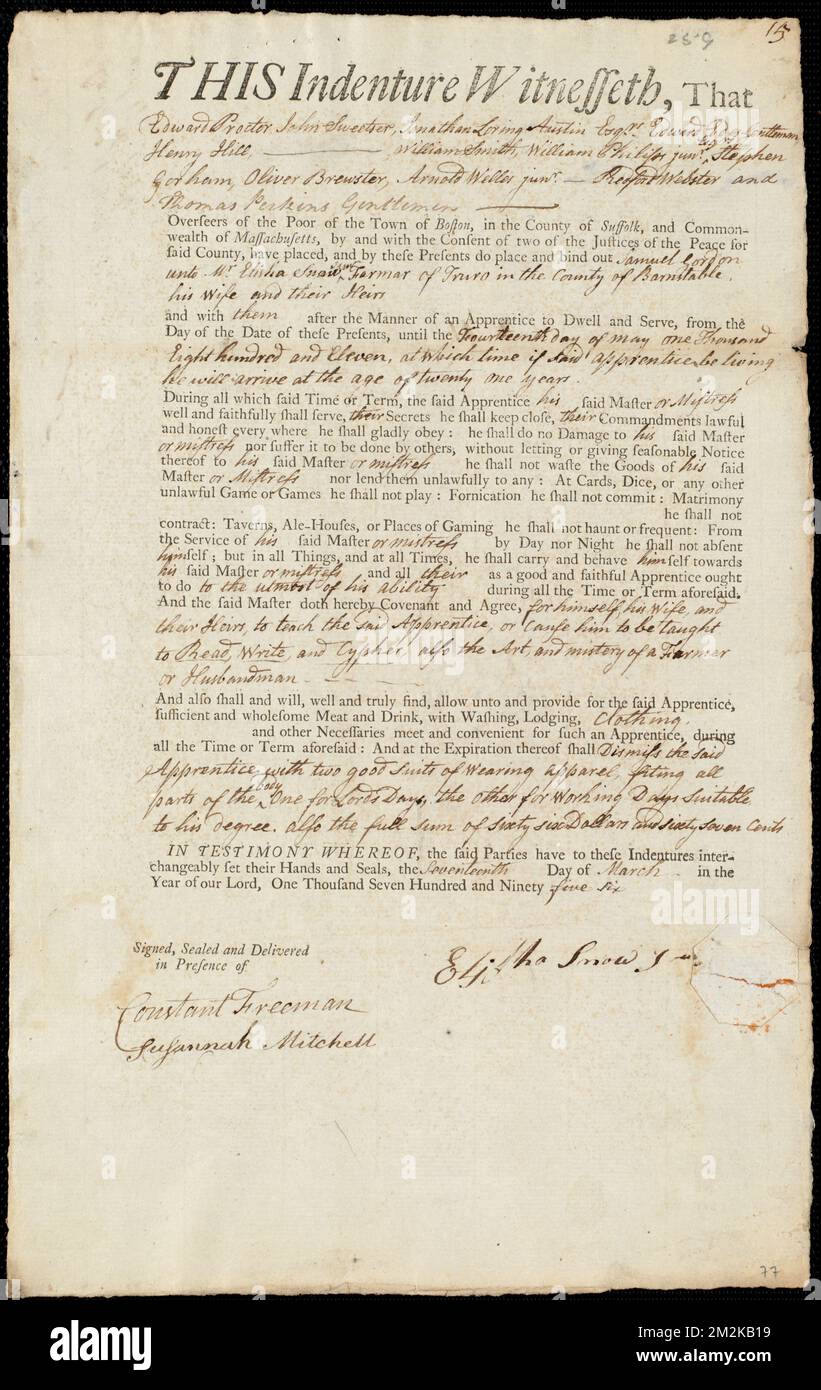 25-9
15
THIS Indenture Witnesseth, That
Edward Proctor John Sweetser, Jonathan Loring Austin Esqrs. Edward Edes Gentleman
Henry Hill, William Smith, William Phillips junr. Esqrs, Stephen
Gorham, Oliver Brewster, Arnold Welles junr. Redford Webster and
Thomas Perkins Gentlemen
Overseers of the Poor of the Town of Boston, in the County of Suffolk, and Common-
wealth of Massachusetts, by and with the Consent of two of the Justices of the Peace for
said County, have placed, and by these Presents do place and bind out Samuel Gordon
unto Mr. Elisha Snow Junr. Farmar of Truro in the County of Barnstable,
his Wife and their Heirs
and with them after the Manner of an Apprentice to Dwell and Serve, from the
Day of the Date of these Presents, until the Fourteenth day of may one Thousand
Eight hundred and Eleven, at which time if said apprentice be living
he will arrive at the age of twenty one years.
During all which said Time or Term, the said Apprentice his said Master or Mistress
well and faithfully shall serve, their Secrets he shall keep close, their Commandments lawful
and honest every where he shall gladly obey: he shall do no Damage to his said Master
or mistress nor suffer it to be done by others, without letting or giving seasonable Notice
thereof to his said Master or mistress he shall not waste the Goods of his said
Master or Mistress nor lend them unlawfully to any: At Cards, Dice, or any other
unlawful Game or Games he shall not play: Fornication he shall not commit: Matrimony
he shall not
contract: Taverns, Ale-Houses, or Places of Gaming he shall not haunt or frequent: From
the Service of his said Master or mistress by Day nor Night he shall not absent
himself; but in all Things, and at all Times, he shall carry and behave himself towards
his said Master or mistress and all their as a good and faithful Apprentice ought
to do to the utmost of his ability during all the Time or Term aforesaid.
And the said Master doth hereby Covenant and Agree, for himself, his Wife, and
their Heirs, to teach the said Apprentice, or cause him to be taught
to Read, Write, and Cypher also the Art, and mistery of a Farmer
or Husbandman
And also shall and will, well and truly find, allow unto and provide for the said Apprentice,
sufficient and wholesome Meat and Drink, with Washing, Lodging, Clothing.
and other Necessaries meet and convenient for such an Apprentice, during
all the Time or Term aforesaid: And at the Expiration thereof shall Dismiss the said
Apprentice with two good suits of Wearing apparel, fiting all
parts of the body One for Lords Days, the other for Working Days suitable
to his degree. also the full sum of sixty six Dollars and sixty seven Cents
IN TESTIMONY WHEREOF, the said Parties have to these Indentures inter-
changeably set their Hands and Seals, the Seventeenth Day of March in the
Year of our Lord, One Thousand Seven Hundred and Ninety five six
Signed, Sealed and Delivered
in Presence of
Elisha Snow
Constant Freeman
Susannah Mitchell
77
alamy
Image ID: 2M2KB19
www.alamy.com